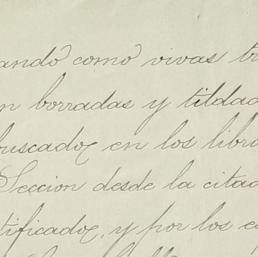 ando como vivas tr
n borradas y tildad
buscados en los libro
Seccion desde la citad
tificados, y por los e